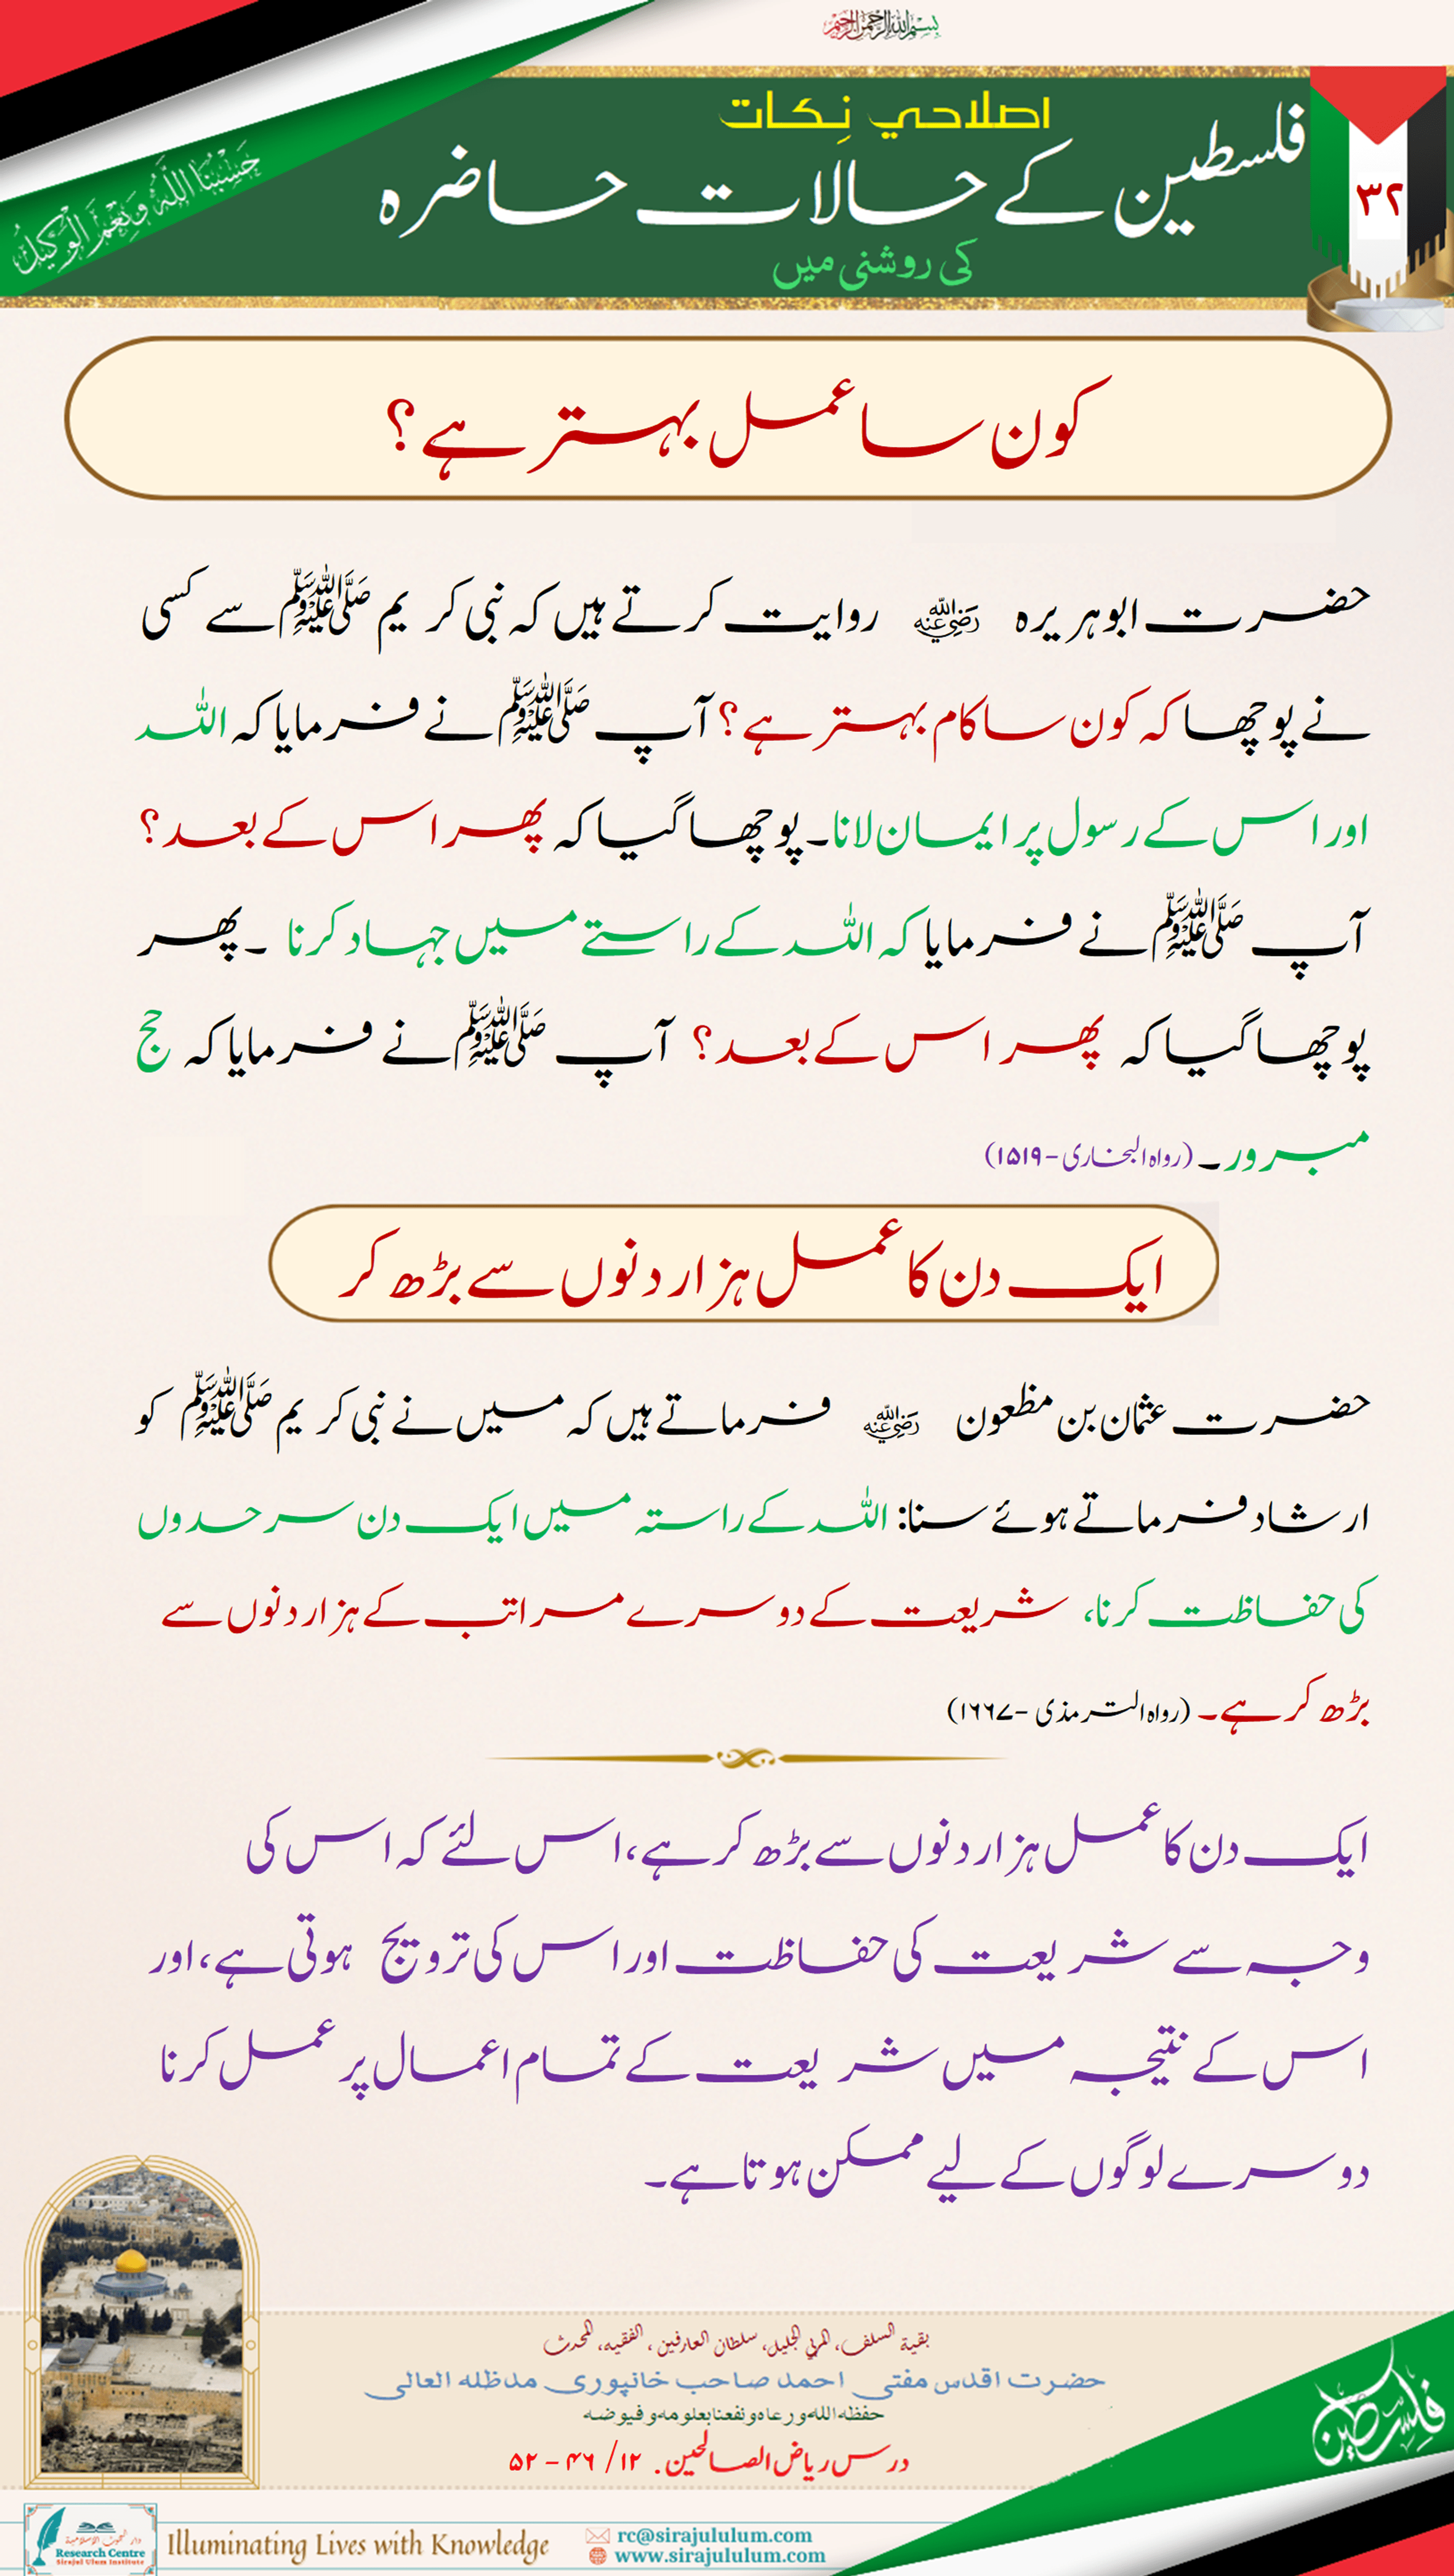 بسم اللہ الرحمن الرحیم
حَسْبُنَا اللّٰهُ وَنِعْمَ الْوَكِيْلُ
اصلاحي نِکات
۳۲
فلسطین کے حالات حاضرہ
کی روشنی میں
کون سا عمل بہتر ہے؟
حضرت ابوہریرہ رضی اللہ عنہ روایت کرتے ہیں کہ نبی کریم ﷺ سے کسی
نے پوچھا کہ کون سا کام بہتر ہے؟ آپ ﷺ نے فرمایا کہ اللہ
اور اس کے رسول پر ایمان لانا۔ پوچھا گیا کہ پھر اس کے بعد؟
آپ ﷺ نے فرمایا کہ اللہ کے راستے میں جہاد کرنا ۔ پھر
پوچھا گیا کہ پھر اس کے بعد؟ آپ ﷺ نے فرمایا کہ حج
مبرور۔ (رواہ البخاری - ۱۵۱۹)
ایک دن کا عمل ہزار دنوں سے بڑھ کر
حضرت عثمان بن مظعون رضی اللہ عنہ فرماتے ہیں کہ میں نے نبی کریم ﷺ کو
ارشاد فرماتے ہوئے سنا: اللہ کے راستہ میں ایک دن سرحدوں
کی حفاظت کرنا، شریعت کے دوسرے مراتب کے ہزار دنوں سے
بڑھ کر ہے۔ (رواہ الترمذی - ۱۶۶۷)
ایک دن کا عمل ہزار دنوں سے بڑھ کر ہے، اس لئے کہ اس کی
وجہ سے شریعت کی حفاظت اور اس کی ترویج ہوتی ہے، اور
اس کے نتیجہ میں شریعت کے تمام اعمال پر عمل کرنا
دوسرے لوگوں کے لیے ممکن ہوتا ہے۔
بقیة السلف، المربي الجلیل، سلطان العارفین، الفقیه، المحدث
حضرت اقدس مفتی احمد صاحب خانپوری مدظله العالی
حفظه الله ورعاه ونفعنا بعلومه وفیوضه
درس ریاض الصالحین. ۱۲/ ۴۶ - ۵۲
فلسطین
دار البحوث الإسلامية
Research Centre
Sirajul Ulum Institute
Illuminating Lives with Knowledge
rc@sirajululum.com
www.sirajululum.com